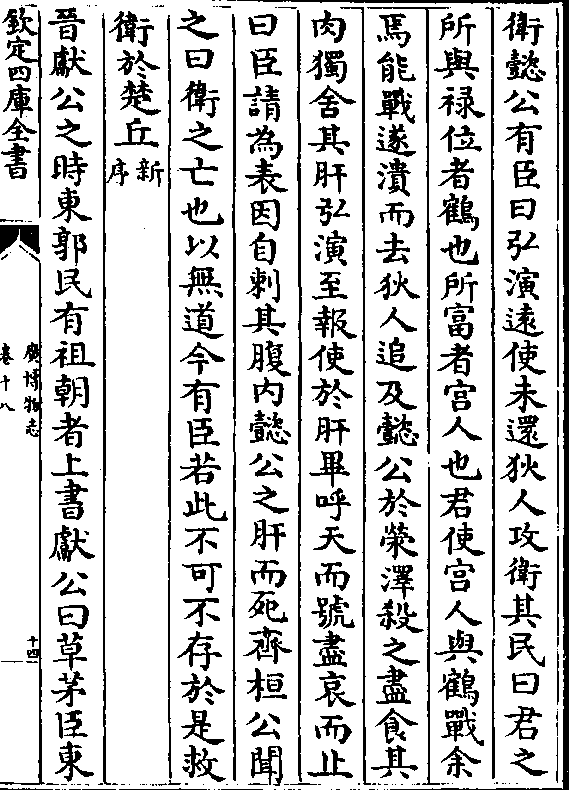 衛懿公有臣曰弘演遠使未還狄人攻衛其民曰君之
所與禄位者鶴也所富者宫人也君使宫人與鶴戰余
焉能戰遂潰而去狄人追及懿公於滎澤殺之盡食其
肉獨舍其肝弘演至報使於肝畢呼天而號盡哀而止
曰臣請為表因自刺其腹内懿公之肝而死齊桓公聞
之曰衛之亡也以無道今有臣若此不可不存於是救
衛於楚丘新序
晉獻公之時東郭民有祖朝者上書獻公曰草茅臣東
欽定四庫全書
廣博物志
卷十八
十四